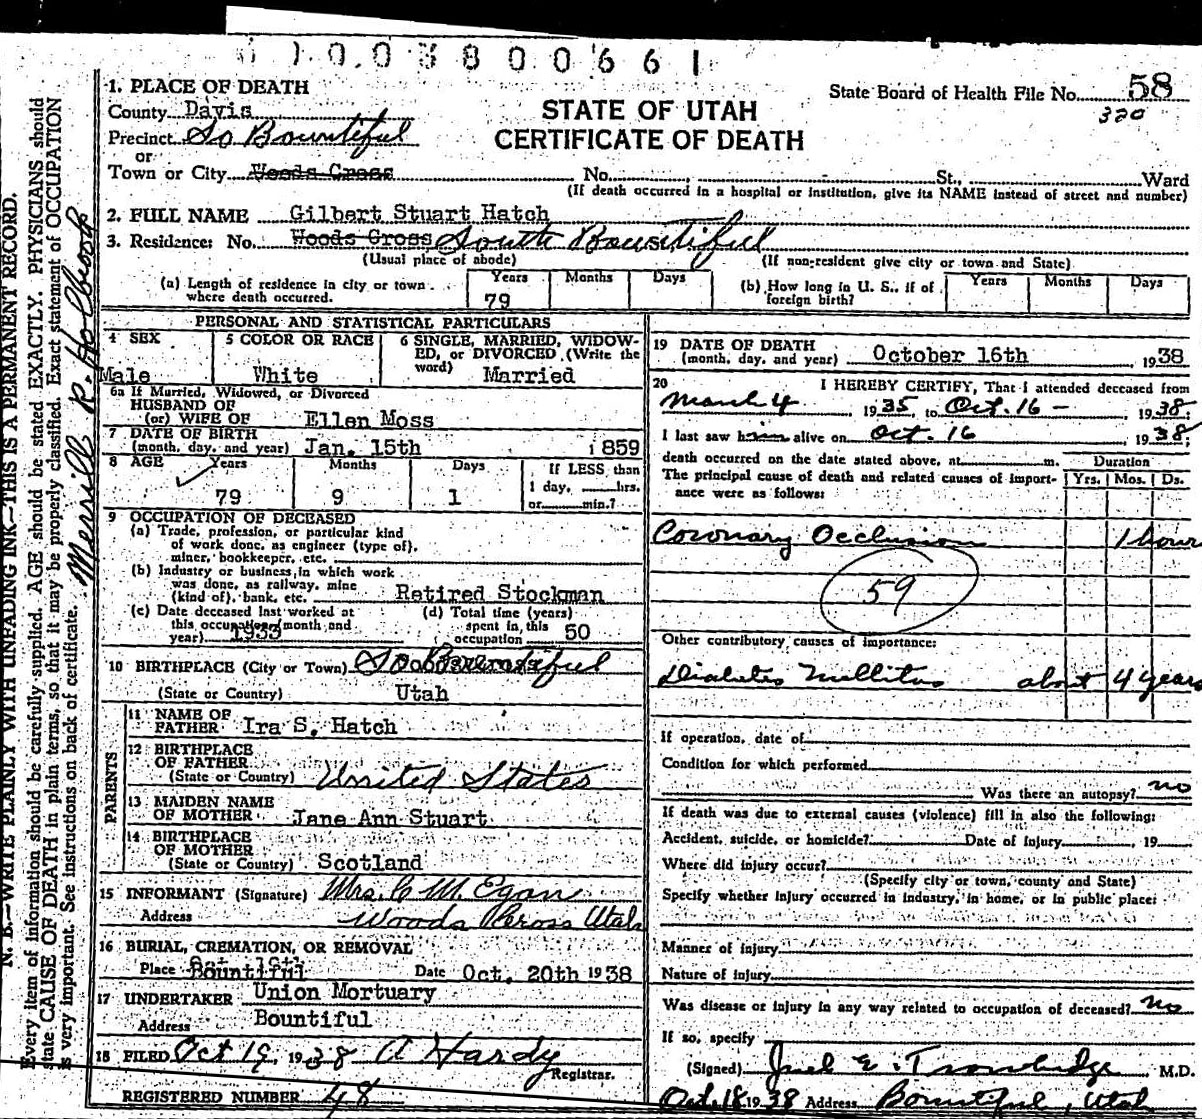 6100380066 1
1. PLACE OF DEATH
County Davis
Precinct So Bountiful
or
Town or City Woods Cross No. St., Ward
(If death occurred in a hospital or institution, give its NAME instead of street and number)
STATE OF UTAH
CERTIFICATE OF DEATH
State Board of Health File No. 58
320
2. FULL NAME Gilbert Stuart Hatch
3. Residence: No. Woods Cross South Bountiful
(Usual place of abode) (If non-resident give city or town and State)
(a) Length of residence in city or town where death occurred. Years 79 Months Days
(b) How long in U. S., if of foreign birth? Years Months Days
PERSONAL AND STATISTICAL PARTICULARS
4 SEX Male
5 COLOR OR RACE White
6 SINGLE, MARRIED, WIDOW-
ED, or DIVORCED (Write the
word) Married
6a If Married, Widowed, or Divorced
HUSBAND OF
(or) WIFE OF Ellen Moss
7 DATE OF BIRTH
(month, day, and year) Jan. 15th 1859
8 AGE Years 79 Months 9 Days 1
If LESS than
1 day, hrs.
or min.?
9 OCCUPATION OF DECEASED
(a) Trade, profession, or particular kind
of work done, as engineer (type of),
miner, bookkeeper, etc.
(b) Industry or business in which work
was done, as railway, mine
(kind of), bank, etc. Retired Stockman
(c) Date deceased last worked at
this occupation, month and
year) 1933
(d) Total time (years)
spent in this
occupation 50
10 BIRTHPLACE (City or Town) So Bountiful
(State or Country) Utah
PARENTS
11 NAME OF
FATHER Ira S. Hatch
12 BIRTHPLACE
OF FATHER
(State or Country) United States
13 MAIDEN NAME
OF MOTHER Jane Ann Stuart
14 BIRTHPLACE
OF MOTHER
(State or Country) Scotland
15 INFORMANT (Signature) Mrs. C M. Egan
Address Woods Cross Utah
16 BURIAL, CREMATION, OR REMOVAL
Place Bountiful Date Oct. 20th 1938
17 UNDERTAKER Union Mortuary
Address Bountiful
18 FILED Oct 19, 1938 A Hardy
Registrar.
REGISTERED NUMBER 48
19 DATE OF DEATH
(month, day, and year) October 16th 1938
20 I HEREBY CERTIFY, That I attended deceased from
March 4, 1935, to Oct. 16 - 1938;
I last saw him alive on Oct. 16, 1938;
death occurred on the date stated above, at m. Duration
The principal cause of death and related causes of import-
ance were as follows: Yrs. Mos. Ds.
Coronary Occlusion 1 hour
59
Other contributory causes of importance:
Diabetes Mellitus about 4 years
If operation, date of
Condition for which performed
Was there an autopsy? no
If death was due to external causes (violence) fill in also the following:
Accident, suicide, or homicide? Date of injury, 19
Where did injury occur?
(Specify city or town, county and State)
Specify whether injury occurred in industry, in home, or in public place:
Manner of injury
Nature of injury
Was disease or injury in any way related to occupation of deceased? no
If so, specify
(Signed) E. Trowbridge M.D.
Oct. 18 1938 Address Bountiful, Utah
N. B.—WRITE PLAINLY WITH UNFADING INK—THIS IS A PERMANENT RECORD.
Every item of information should be carefully supplied. AGE should be stated EXACTLY. PHYSICIANS should
state CAUSE OF DEATH in plain terms, so that it may be properly classified. Exact statement of OCCUPATION
is very important. See instructions on back of certificate.
Merrill R. Holbrook